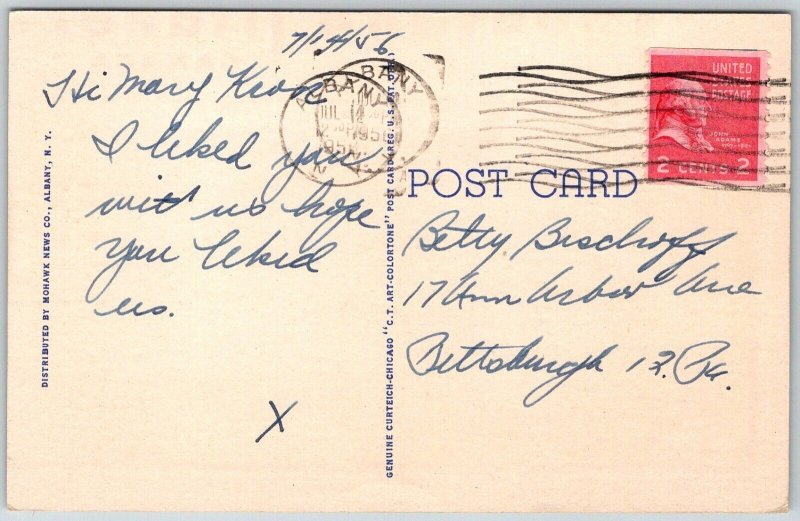 7/14/56
Hi Mary
I liked you
with us hope
you liked
us.
X
DISTRIBUTED BY MOHAWK NEWS CO., ALBANY, N. Y.
GENUINE CURTEICH-CHICAGO "C.T. ART-COLORTONE" POST CARD (REG. U.S. PAT. OFF.)
ALBANY
JUL 14
1956
N.Y.
UNITED
STATES
POSTAGE
JOHN
ADAMS
2 CENTS 2
POST CARD
Betty Bischoff
17 Ann Arbor Ave
Bettsburgh 12. Pa.